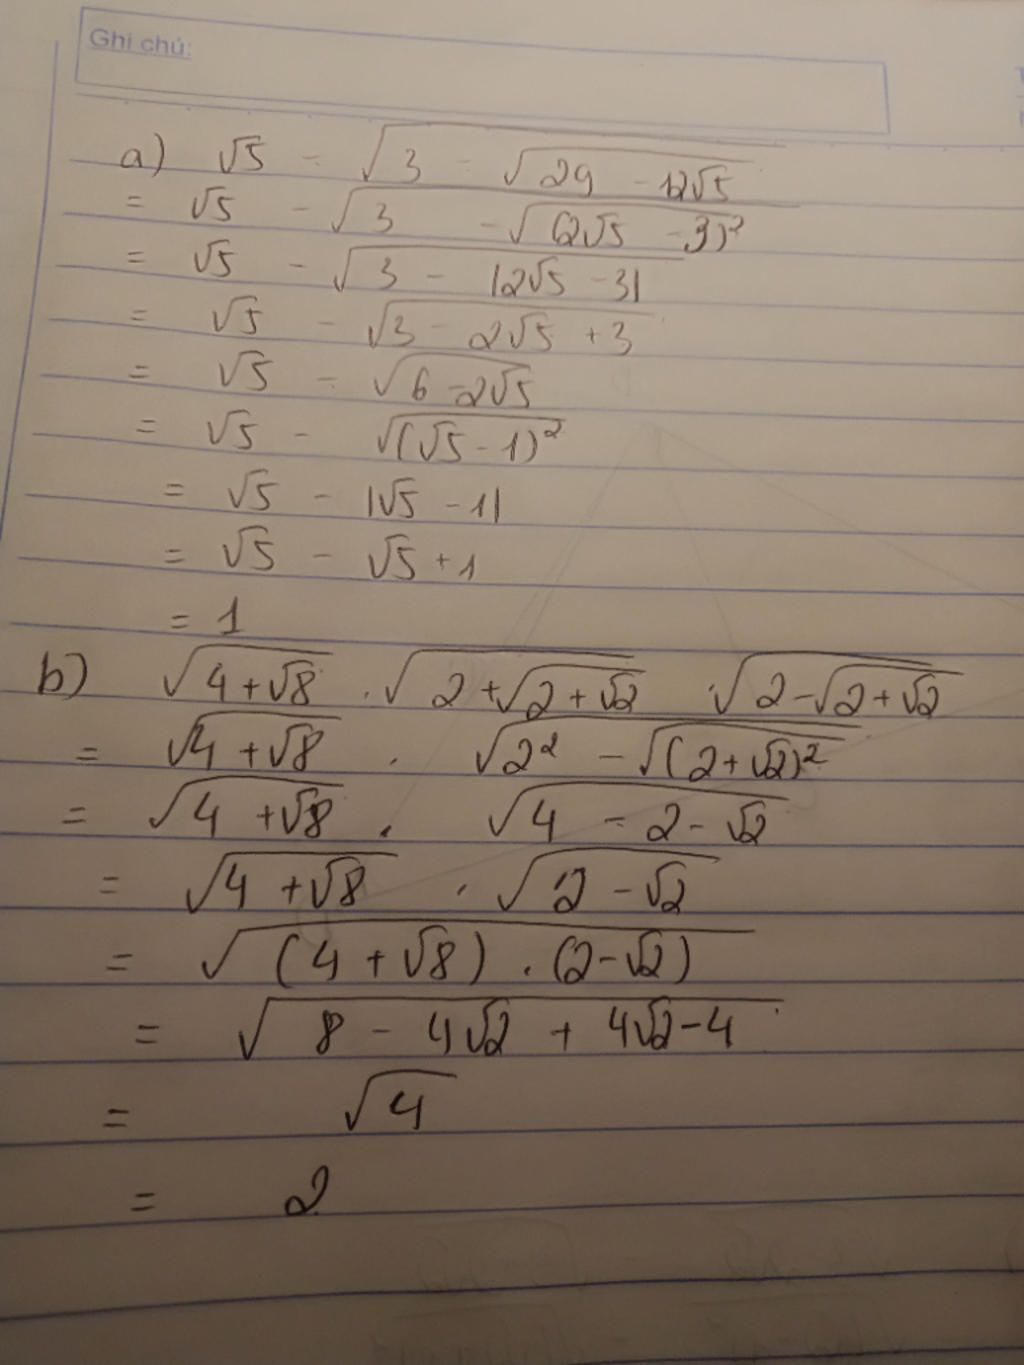 Ghi chú:
a) √5 - √(3 - √(29 - 12√5))
= √5 - √(3 - √((2√5 - 3)²))
= √5 - √(3 - |2√5 - 3|)
= √5 - √(3 - 2√5 + 3)
= √5 - √(6 - 2√5)
= √5 - √((√5 - 1)²)
= √5 - |√5 - 1|
= √5 - √5 + 1
= 1
b) √(4 + √8) . √(2 + √(2 + √2)) . √(2 - √(2 + √2))
= √(4 + √8) . √(2² - √((2 + √2)²))
= √(4 + √8) . √(4 - 2 - √2)
= √(4 + √8) . √(2 - √2)
= √((4 + √8) . (2 - √2))
= √(8 - 4√2 + 4√2 - 4)
= √4
= 2